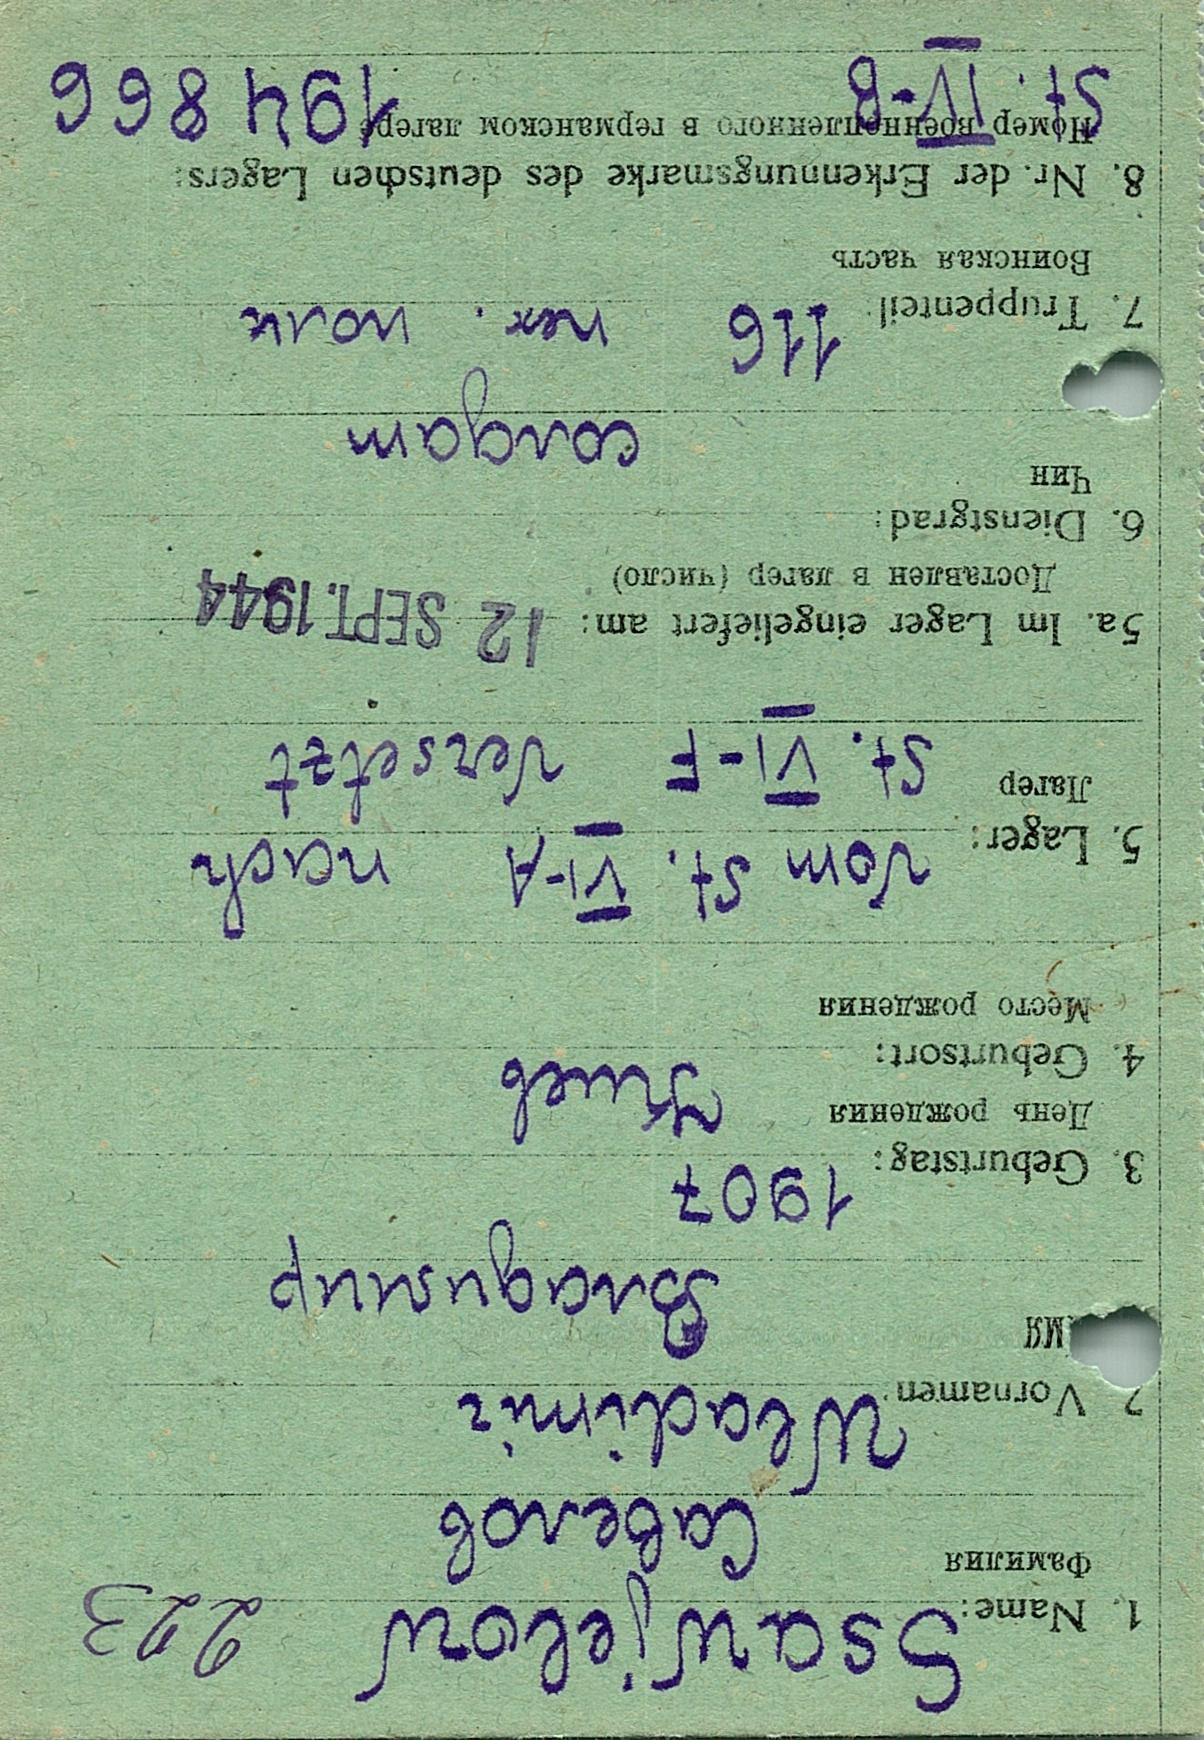 1. Name: Ssawjelow 223
Фамилия
Савелов
2 Vornamen Wladimir
мя
Владимир
3. Geburtstag: 1907
День рождения
4. Geburtsort: Киев
Место рождения
5. Lager: Vom St. VI-A nach
Лагер St. VI-F versetzt
5a. Im Lager eingeliefert am: 12 SEPT. 1944
Доставлен в лагер (число)
6. Dienstgrad:
Чин
солдат
7. Truppenteil: 116 пех. полк
Воинская часть
8. Nr. der Erkennungsmarke des deutschen Lagers:
Номер военнопленного в германском лагере
St. IV-B 194866